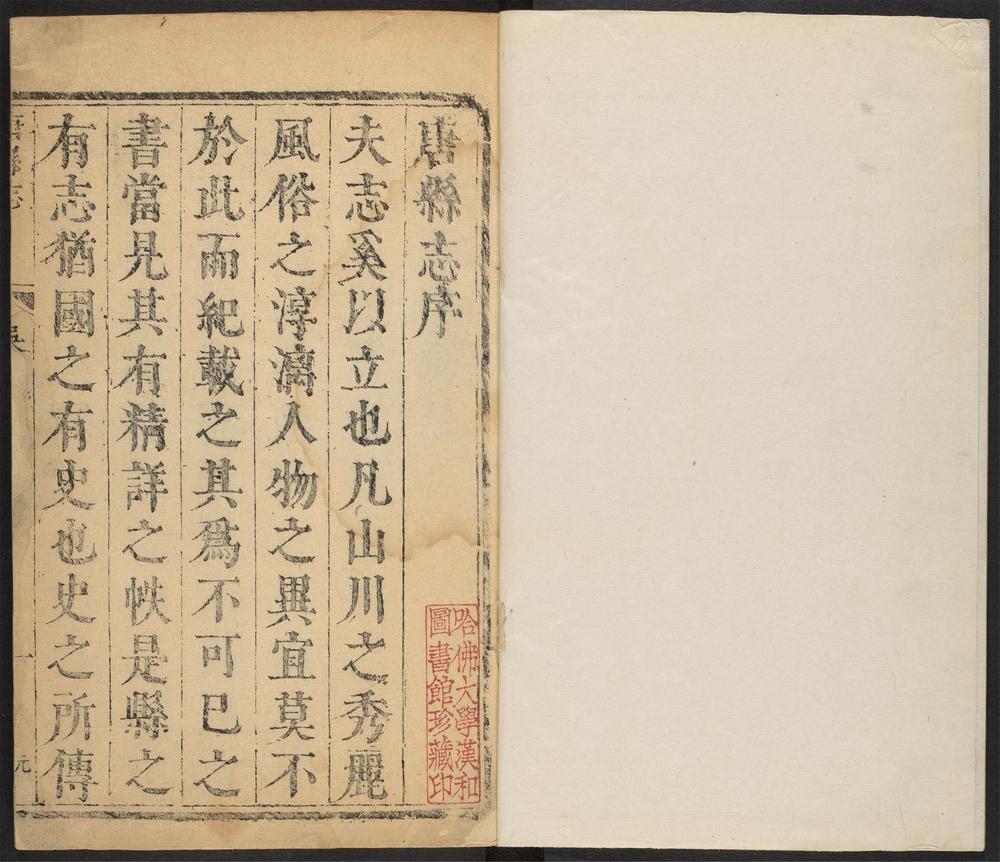 唐縣志序
夫志奚以立也凡山川之秀麗
風俗之淳漓人物之異宜莫不
於此而紀載之其爲不可已之
書當見其有精詳之帙是縣之
有志猶國之有史也史之所傳
哈佛大學漢和
圖書館珍藏印
唐縣志
一
元